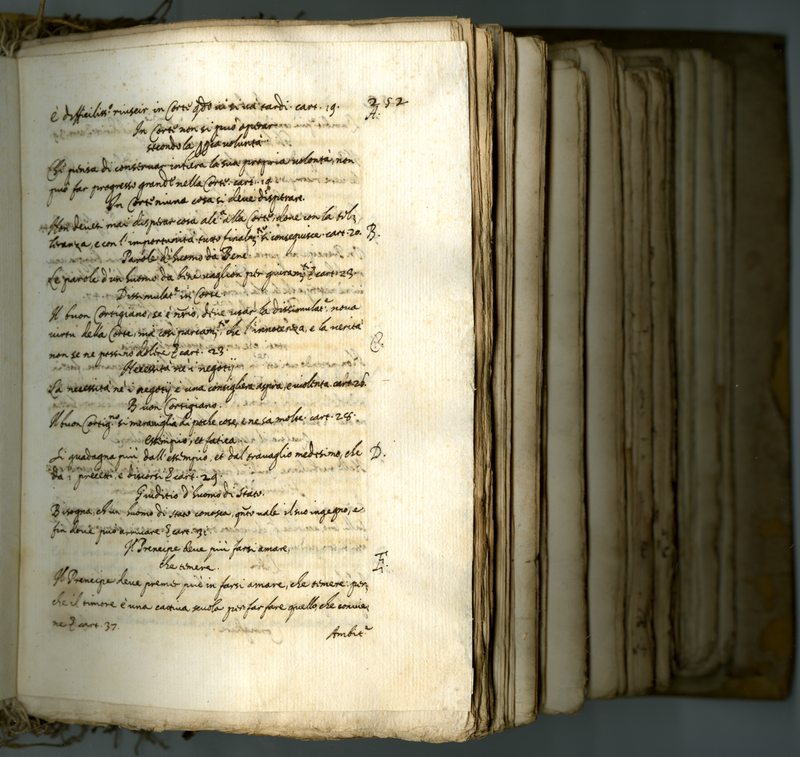 252
è difficiliss.º riuscir, in Corte qdo vi si và tardi. cart. 19. A.
In Corte non si può operar
secondo la ppria voluntà.
Chi pensa di conservar intiera la sua propria volontà, non
può far progresso grande nella Corte. cart. 19.
In Corte niuna cosa si deve disperare.
Non devesi mai disperar cosa alc.ª alla Corte, dove con la tole
leranza, e con l'importunità tutto finalm.te si conseguisce. cart. 20. B.
Parole d'huomo da Bene.
Le parole d'un huomo da bene vagliono per giuram.ti cart. 23.
Dissimulat.e in Corte
Il buon Cortigiano, se è nrio, deve usar la dissimulat.e, nova
virtù della Corte, mà così parcam.te, che l'innocenza, e la verità
non se ne possino dolere cart. 23. C.
Necessità ne i negotij
La necessità ne i negotij è una consigliera aspra, e violenta. cart. 26.
Buon Cortigiano.
Il buon Cortig.no si meraviglia di poche cose, e ne sa molte. cart. 28.
Essempio, et fatica
Si guadagna più dall'essempio, et dal travaglio medesimo, che D.
da i precetti, e discorsi cart. 29.
Giuditio d'huomo di Stato.
Bisogna, ch'un huomo di stato conosca, qnto vale il suo ingegno, e
fin dove può arrivare cart. 31.
Il Prencipe deve più farsi amare,
che temere. E.
Il Prencipe deve premer più in farsi amare, che temere: per,
che il timore è una cattiva scuola per far fare quello, che convie,
ne cart. 37.
Ambit.e